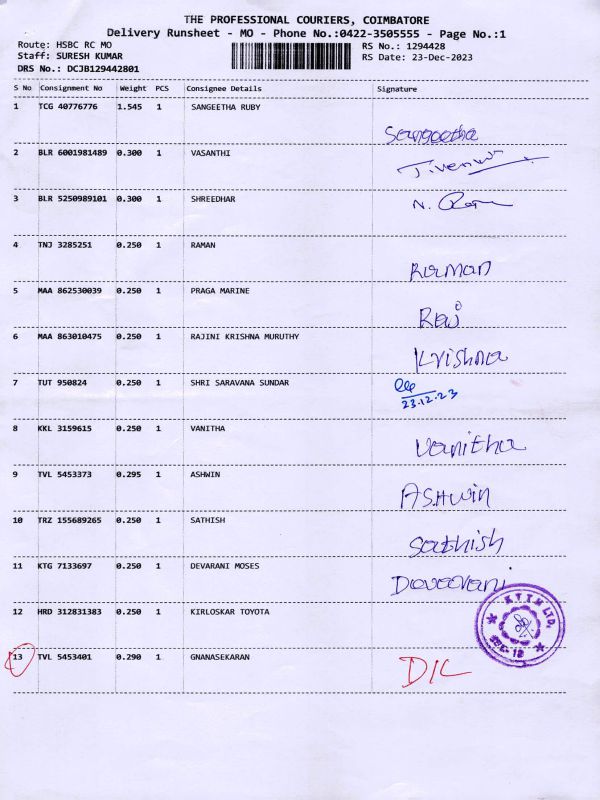 THE PROFESSIONAL COURIERS, COIMBATORE
Delivery Runsheet - MO - Phone No.:0422-3505555 - Page No.:1
Route: HSBC RC MO RS No.: 1294428
Staff: SURESH KUMAR RS Date: 23-Dec-2023
DRS No.: DCJB129442801
S No Consignment No Weight PCS Consignee Details Signature
1 TCG 40776776 1.545 1 SANGEETHA RUBY
Sangeetha
2 BLR 6001981489 0.300 1 VASANTHI
3 BLR 5250989101 0.300 1 SHREEDHAR N.
4 TNJ 3285251 0.250 1 RAMAN
Raman
5 MAA 862530039 0.250 1 PRAGA MARINE
Raj
6 MAA 863010475 0.250 1 RAJINI KRISHNA MURUTHY
Krishna
7 TUT 950824 0.250 1 SHRI SARAVANA SUNDAR
23.12.23
8 KKL 3159615 0.250 1 VANITHA
Vanitha
9 TVL 5453373 0.295 1 ASHWIN
ASHwin
10 TRZ 155689265 0.250 1 SATHISH
Sathish
11 KTG 7133697 0.250 1 DEVARANI MOSES
12 HRD 312831383 0.250 1 KIRLOSKAR TOYOTA
13 TVL 5453401 0.290 1 GNANASEKARAN
D/L